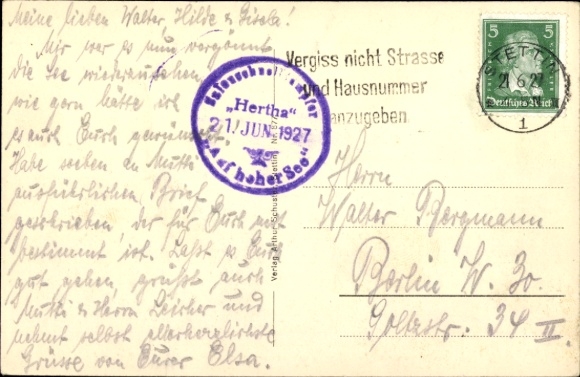 Meine lieben Walter, Hilde & Gisela!
Mir war es nun vergönnt
die See wiederzusehen,
wie gern hätte ich
es auch Euch gewünscht.
Habe soeben an Mutti
ausführlichen Brief
geschrieben, der für Euch mit
bestimmt ist. Laßt es Euch
gut gehen, grüßt auch
Mutti & Herrn und
nehmt selbst allerherzlichste
Grüsse von Eurer Elsa.
Salonschnelldampfer
„Hertha"
21. JUN. 1927
"Auf hoher See"
Vergiss nicht Strasse
und Hausnummer
anzugeben
5 5
Deutsches Reich
STETTIN
21.6.27
1
Verlag Arthur Schuster, Stettin
Herrn
Walter Bergmann
Berlin W. 30.
Goltzstr. 34 II